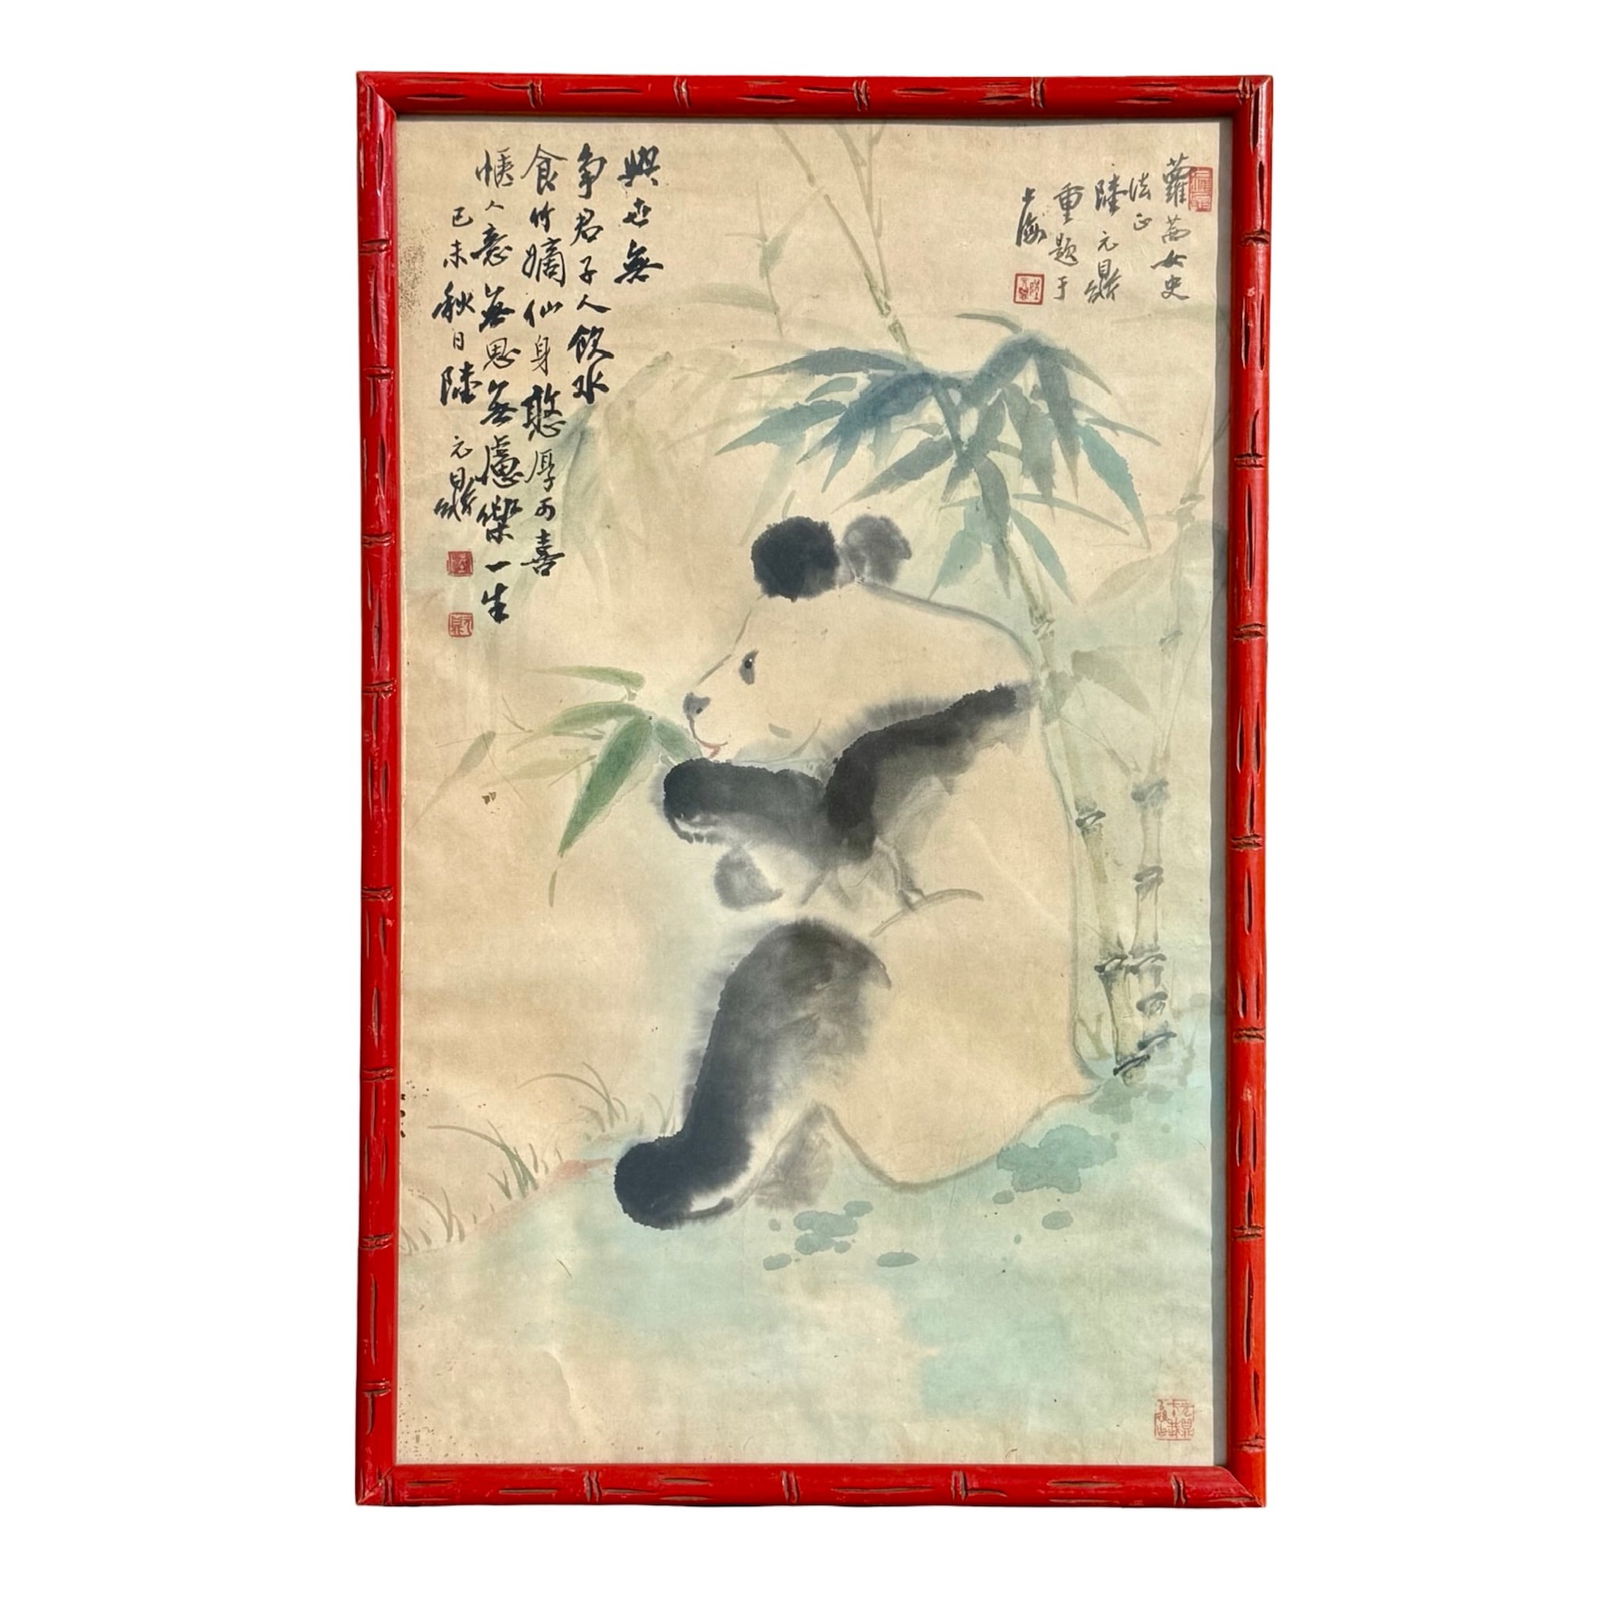 與世無
争君子人飲水
食竹嫡仙身憨厚可喜
愜人意無思無慮樂一生
己未秋日陸元鼎
蘿茜女史
法正
陸元鼎
重題于
上海